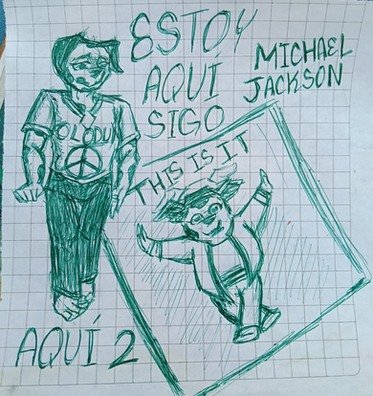 ESTOY
AQUI
SIGO
MICHAEL
JACKSON
OLODUM
THIS IS IT
AQUÍ 2